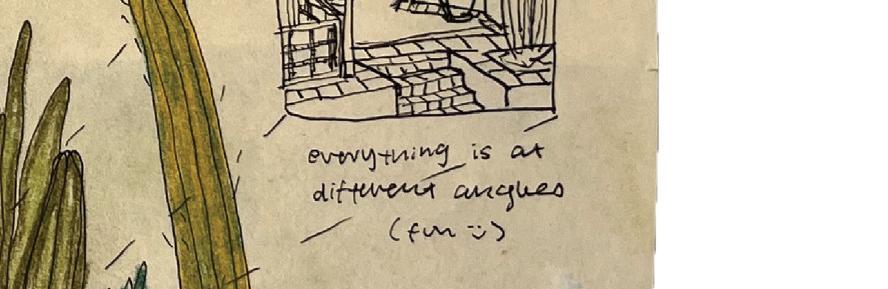 everything is at
different angles
(fun :))